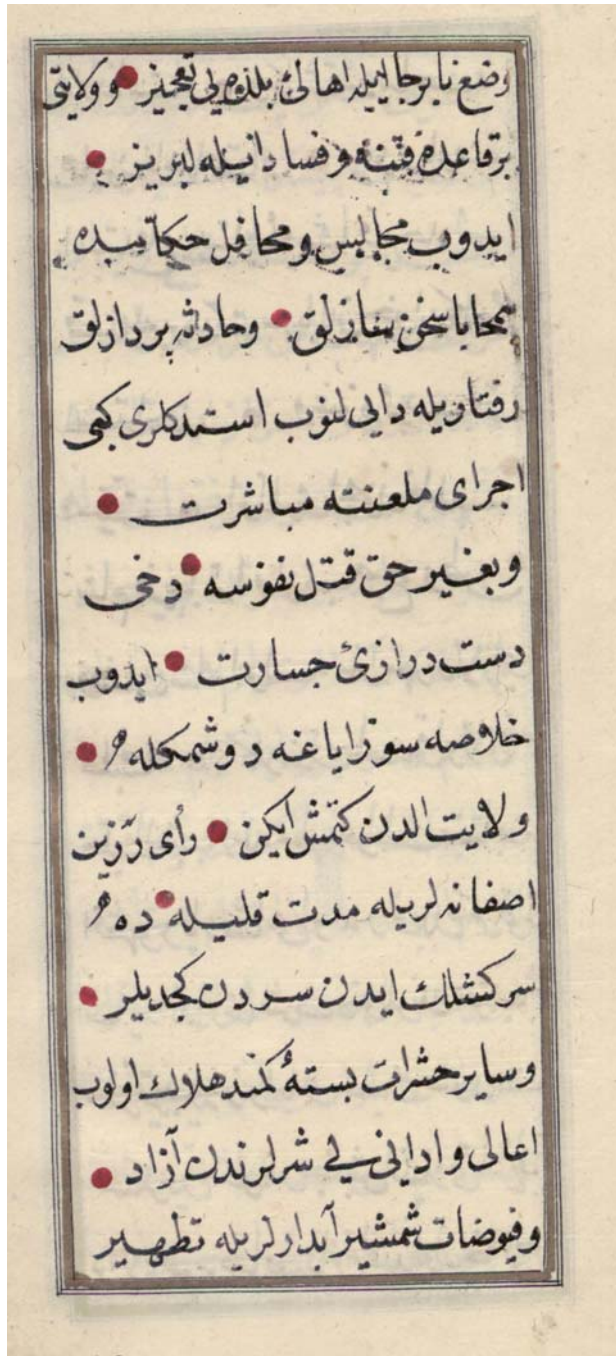 وضع نا برجا ایله اهالئ بلده یی تعجیز و ولایتی
بر قاعده فتنه و فساد انیله لبریز
ایدوب مجالس و محافل حکامیده
بمحابا سخن سازلق و حادثه پردازلق
رفتاریله دایی لنوب استدکلری کبی
اجرای ملعنته مباشرت
و بغیر حق قتل نفوسه دخی
دست درازئ جسارت ایدوب
خلاصه سوز ایاغه دوشمکله
ولایت الدن کتمش ایکن رأی رزین
اصفانه لریله مدت قلیله ده
سرکشلك ایدن سردن کچدیلر
و سایر حشرات بستهٔ کمند هلاك اولوب
اعالی و ادانی یی شرلرندن آزاد
و فیوضات شمشیر آبدارلریله تطهیر